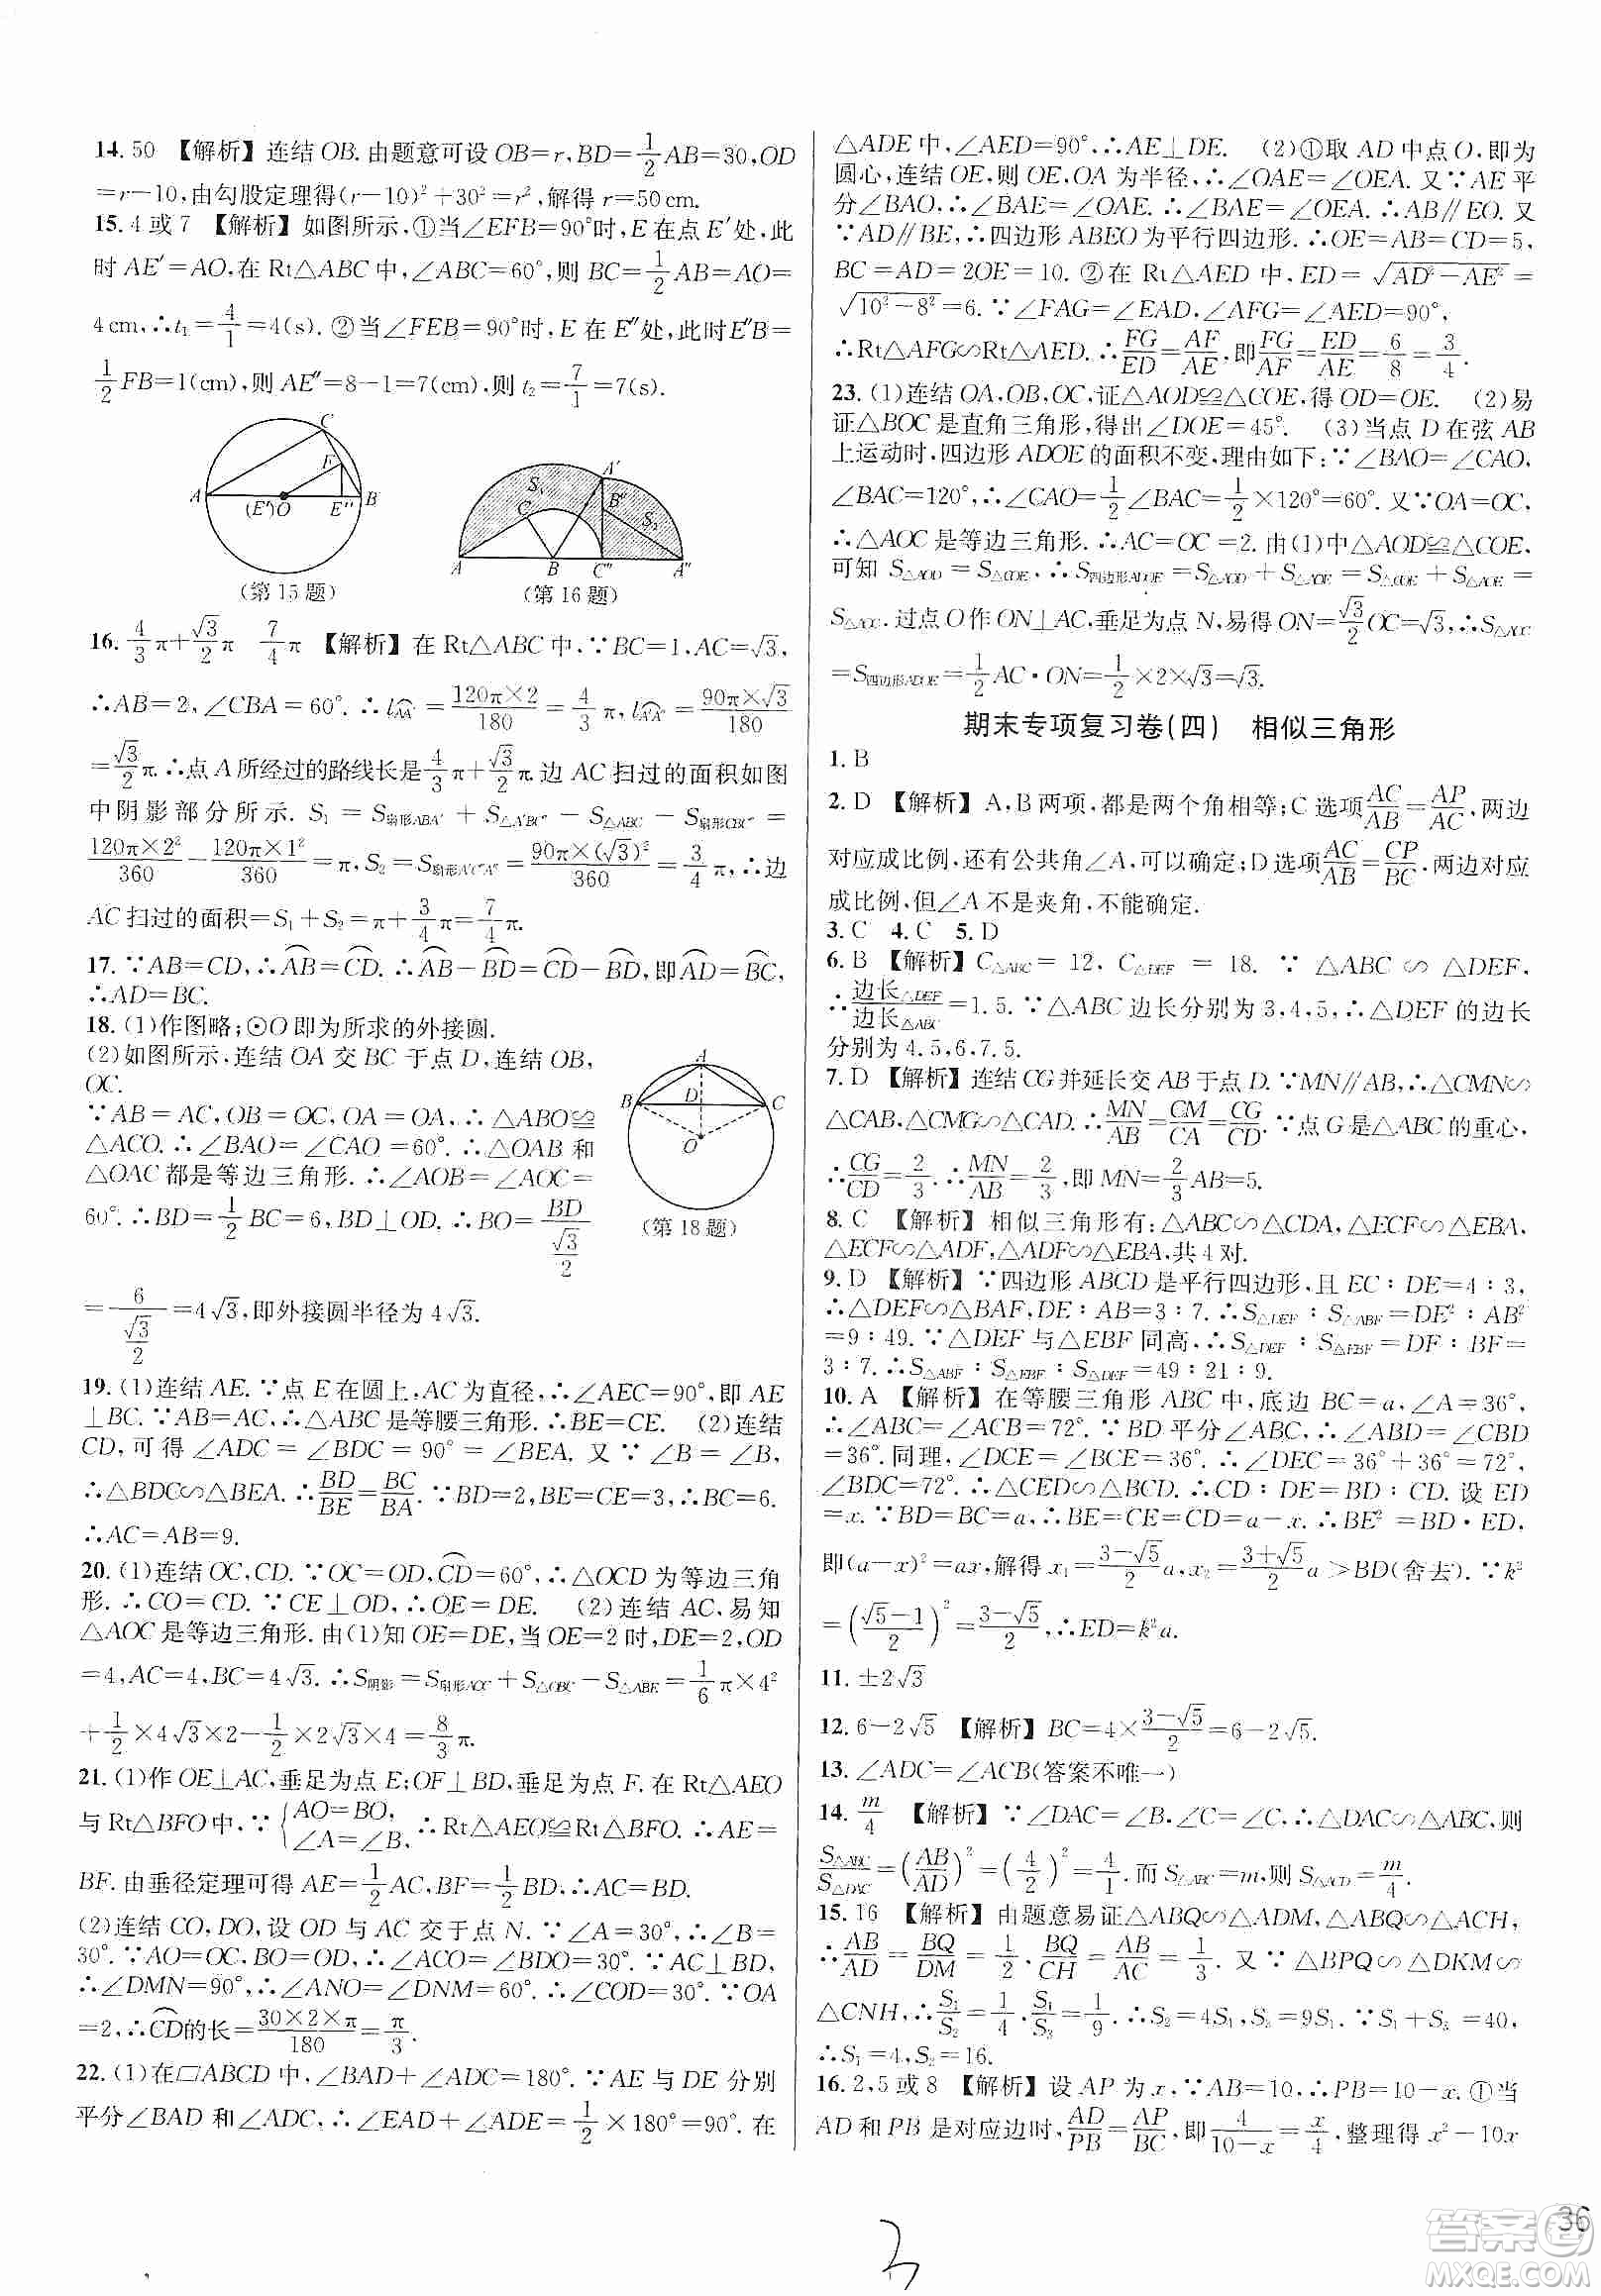 14. 50 【解析】连结OB. 由题意可设OB=r, BD=1/2AB=30, OD
=r-10, 由勾股定理得(r-10)²+30²=r², 解得 r=50 cm.
15. 4 或 7 【解析】如图所示, ①当∠EFB=90°时, E 在点 E′处, 此
时 AE′=AO, 在 Rt△ABC 中, ∠ABC=60°, 则 BC=1/2AB=AO=
4 cm, ∴t₁=4/1=4(s). ②当∠FEB=90°时, E 在 E″处, 此时E″B=
1/2FB=1(cm), 则 AE″=8-1=7(cm), t₂=7/1=7(s).
C
E
A
(E′)O
E″
B
(第15题)
A′
S₁
C
B″
S₂
A
B
C″
A″
(第16题)
16. 4/3π+√3/2π 7/4π 【解析】在 Rt△ABC 中, ∵BC=1, AC=√3,
∴AB=2, ∠CBA=60°. ∴l AA′=120π×2/180=4/3π, l A′A″=90π×√3/180
=√3/2π. ∴点 A 所经过的路线长是4/3π+√3/2π. 边 AC 扫过的面积如图
中阴影部分所示. S₁=S扇形ABA′+S△A′BC″-S△ABC-S扇形CBC″=
120π×2²/360-120π×1²/360=π, S₂=S扇形A′C″A″=90π×(√3)²/360=3/4π, ∴边
AC 扫过的面积=S₁+S₂=π+3/4π=7/4π.
17. ∵AB=CD, ∴AB=CD. ∴AB-BD=CD-BD, 即AD=BC,
∴AD=BC.
18. (1)作图略; ⊙O 即为所求的外接圆.
(2)如图所示, 连结 OA 交 BC 于点 D, 连结 OB,
OC.
∵AB=AC, OB=OC, OA=OA, ∴△ABO≌
△ACO. ∴∠BAO=∠CAO=60°. ∴△OAB 和
△OAC 都是等边三角形. ∴∠AOB=∠AOC=
60°. ∴BD=1/2BC=6, BD⊥OD. ∴BO=BD/(√3/2)
=6/(√3/2)=4√3, 即外接圆半径为 4√3.
A
B
D
C
O
(第18题)
19. (1)连结 AE. ∵点 E 在圆上, AC 为直径, ∴∠AEC=90°, 即 AE
⊥BC. ∵AB=AC, ∴△ABC 是等腰三角形. ∴BE=CE. (2)连结
CD, 可得 ∠ADC=∠BDC=90°=∠BEA. 又∵∠B=∠B,
∴△BDC∽△BEA. ∴BD/BE=BC/BA. ∵BD=2, BE=CE=3, ∴BC=6.
∴AC=AB=9.
20. (1)连结 OC, CD. ∵OC=OD, CD=60°, ∴△OCD 为等边三角
形. ∴CO=CD. ∵CE⊥OD, ∴OE=DE. (2)连结 AC, 易知
△AOC 是等边三角形. 由(1)知 OE=DE, 当 OE=2 时, DE=2, OD
=4, AC=4, BC=4√3. ∴S阴影=S扇形AOC+S△OBC-S△ABE=1/6π×4²
+1/2×4√3×2-1/2×2√3×4=8/3π.
21. (1)作 OE⊥AC, 垂足为点 E; OF⊥BD, 垂足为点 F. 在 Rt△AEO
与 Rt△BFO 中, ∵{AO=BO, ∠A=∠B, ∴Rt△AEO≌Rt△BFO. ∴AE=
BF. 由垂径定理可得 AE=1/2AC, BF=1/2BD, ∴AC=BD.
(2)连结 CO, DO, 设 OD 与 AC 交于点 N. ∵∠A=30°, ∴∠B=
30°. ∵AO=OC, BO=OD, ∴∠ACO=∠BDO=30°. ∵AC⊥BD,
∴∠DMN=90°, ∴∠ANO=∠DNM=60°. ∴∠COD=30°. ∵OA
=2, ∴CD的长=30×2×π/180=π/3.
22. (1)在▱ABCD 中, ∠BAD+∠ADC=180°. ∵AE 与 DE 分别
平分∠BAD 和∠ADC, ∴∠EAD+∠ADE=1/2×180°=90°. 在
△ADE 中, ∠AED=90°, ∴AE⊥DE. (2)①取 AD 中点 O, 即为
圆心, 连结 OE, 则 OE, OA 为半径, ∴∠OAE=∠OEA. 又∵AE 平
分∠BAO, ∴∠BAE=∠OAE. ∴∠BAE=∠OEA. ∴AB∥EO. 又
∵AD∥BE, ∴四边形 ABEO 为平行四边形. ∴OE=AB=CD=5,
BC=AD=2OE=10. ②在 Rt△AED 中, ED=√(AD²-AE²)=
√(10²-8²)=6. ∵∠FAG=∠EAD, ∠AFG=∠AED=90°,
∴Rt△AFG∽Rt△AED. ∴FG/ED=AF/AE, 即FG/AF=ED/AE=6/8=3/4.
23. (1)连结 OA, OB, OC, 证△AOD≌△COE, 得 OD=OE. (2)易
证△BOC 是直角三角形, 得出∠DOE=45°. (3)当点 D 在弦 AB
上运动时, 四边形 ADOE 的面积不变, 理由如下: ∵∠BAO=∠CAO,
∠BAC=120°, ∴∠CAO=1/2∠BAC=1/2×120°=60°. 又∵OA=OC,
∴△AOC 是等边三角形. ∴AC=OC=2. 由(1)中△AOD≌△COE,
可知 S△AOD=S△COE, ∴S四边形ADOE=S△AOD+S△AOE=S△COE+S△AOE=
S△AOC. 过点 O 作 ON⊥AC, 垂足为点 N, 易得 ON=√3/2OC=√3, ∴S△AOC
=S四边形ADOE=1/2AC·ON=1/2×2×√3=√3.
期末专项复习卷(四) 相似三角形
1. B
2. D 【解析】A, B 两项, 都是两个角相等; C 选项AC/AB=AP/AC, 两边
对应成比例, 还有公共角∠A, 可以确定; D 选项AC/AB=CP/BC, 两边对应
成比例, 但∠A 不是夹角, 不能确定.
3. C 4. C 5. D
6. B 【解析】C△ABC=12, C△DEF=18. ∵△ABC∽△DEF,
∴边长△DEF/边长△ABC=1.5. ∵△ABC 边长分别为 3,4,5, ∴△DEF 的边长
分别为 4.5,6,7.5.
7. D 【解析】连结 CG 并延长交 AB 于点 D. ∵MN∥AB, ∴△CMN∽
△CAB, △CMG∽△CAD. ∴MN/AB=CM/CA=CG/CD. ∵点 G 是△ABC 的重心,
∴CG/CD=2/3. ∴MN/AB=2/3, 即 MN=2/3AB=5.
8. C 【解析】相似三角形有: △ABC∽△CDA, △ECF∽△EBA,
△ECF∽△ADF, △ADF∽△EBA, 共 4 对.
9. D 【解析】∵四边形 ABCD 是平行四边形, 且 EC∶DE=4∶3,
∴△DEF∽△BAF, DE∶AB=3∶7. ∴S△DEF∶S△ABF=DE²∶AB²
=9∶49. ∵△DEF 与△EBF 同高, ∴S△DEF∶S△EBF=DF∶BF=
3∶7. ∴S△ABF∶S△EBF∶S△DEF=49∶21∶9.
10. A 【解析】在等腰三角形 ABC 中, 底边 BC=a, ∠A=36°,
∴∠ABC=∠ACB=72°. ∵BD 平分∠ABC, ∴∠ABD=∠CBD
=36°. 同理, ∠DCE=∠BCE=36°. ∴∠DEC=36°+36°=72°,
∠BDC=72°. ∴△CED∽△BCD. ∴CD∶DE=BD∶CD. 设 ED
=x. ∵BD=BC=a, ∴BE=EC=CD=a-x. ∴BE²=BD·ED,
即(a-x)²=ax, 解得 x₁=(3-√5)/2 a, x₂=(3+√5)/2 a>BD(舍去). ∵k²
=((√5-1)/2)²=(3-√5)/2, ∴ED=k²a.
11. ±2√3
12. 6-2√5 【解析】BC=4×(3-√5)/2=6-2√5.
13. ∠ADC=∠ACB(答案不唯一)
14. m/4 【解析】∵∠DAC=∠B, ∠C=∠C, ∴△DAC∽△ABC, 则
S△ABC/S△DAC=(AB/AD)²=(4/2)²=4/1. 而 S△ABC=m, 则 S△ACD=m/4.
15. 16 【解析】由题意易证△ABQ∽△ADM, △ABQ∽△ACH,
∴AB/AD=BQ/DM=1/2. BQ/CH=AB/AC=1/3. 又∵△BPQ∽△DKM∽
△CNH, ∴S₁/S₂=1/4. S₁/S₃=1/9. ∴S₂=4S₁, S₃=9S₁. ∵S₁+S₃=40,
∴S₁=4, S₂=16.
16. 2,5 或 8 【解析】设 AP 为 x, ∵AB=10, ∴PB=10-x. ①当
AD 和 PB 是对应边时, AD/PB=AP/BC, 即4/(10-x)=x/4, 整理得 x²-10x
3
36
答案圈
MXQE.COM